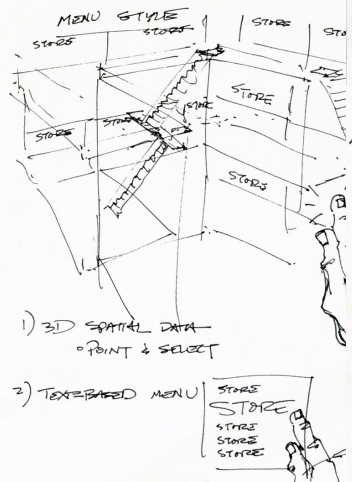 MENU STYLE
STORE STORE STORE STO
STORE
STORE STORE STORE
STORE
1) 3D SPATIAL DATA
• POINT & SELECT
2) TEXT-BASED MENU
STORE
STORE
STORE
STORE
STORE